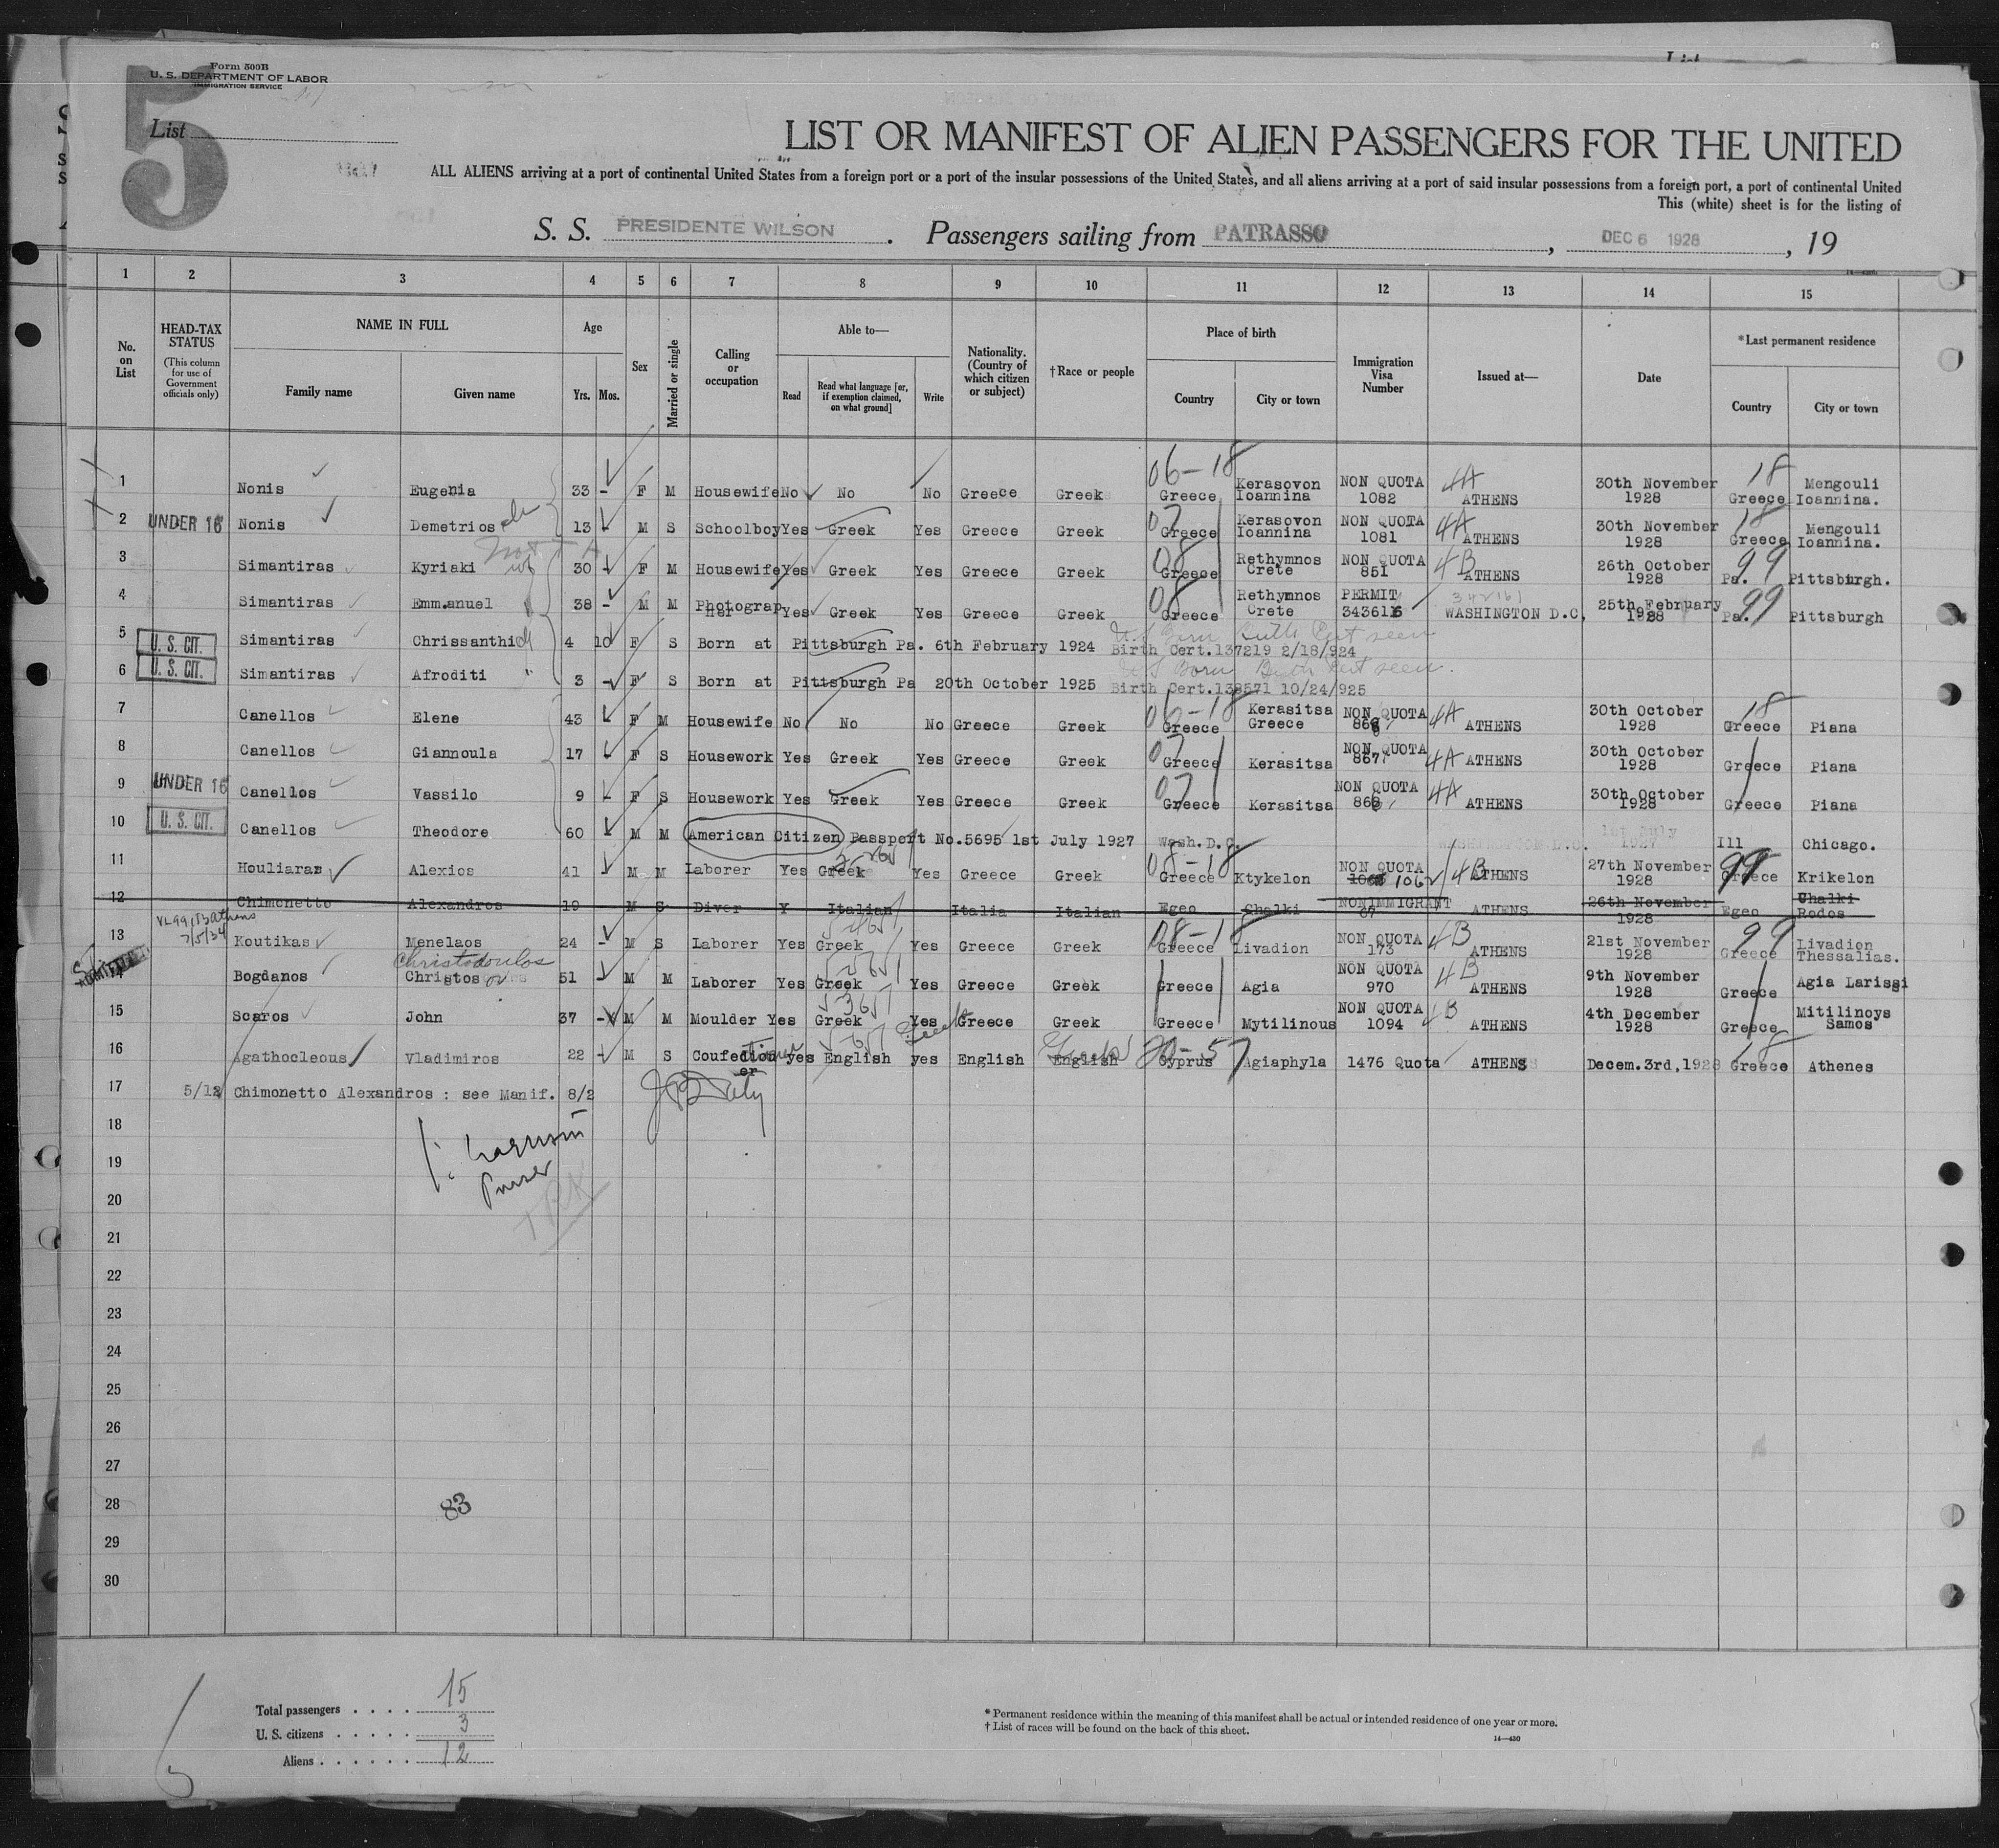 Form 500B
U. S. DEPARTMENT OF LABOR
IMMIGRATION SERVICE
5
List
LIST OR MANIFEST OF ALIEN PASSENGERS FOR THE UNITED
ALL ALIENS arriving at a port of continental United States from a foreign port or a port of the insular possessions of the United States, and all aliens arriving at a port of said insular possessions from a foreign port, a port of continental United
This (white) sheet is for the listing of
S. S. PRESIDENTE WILSON. Passengers sailing from PATRASSO, DEC 6 1928, 19
1 2 3 4 5 6 7 8 9 10 11 12 13 14 15
No. on List
HEAD-TAX STATUS
(This column for use of Government officials only)
NAME IN FULL
Family name Given name
Age
Yrs. Mos.
Sex
Married or single
Calling or occupation
Able to—
Read
Read what language [or, if exemption claimed, on what ground]
Write
Nationality. (Country of which citizen or subject)
†Race or people
Place of birth
Country City or town
Immigration Visa Number
Issued at—
Date
*Last permanent residence
Country City or town
1 Nonis Eugenia 33 - F M Housewife No No No Greece Greek 06-18 Greece Kerasovon Ioannina NON QUOTA 1082 4A ATHENS 30th November 1928 18 Greece Mengouli Ioannina.
2 UNDER 16 Nonis Demetrios 13 - M S Schoolboy Yes Greek Yes Greece Greek 07 Greece Kerasovon Ioannina NON QUOTA 1081 4A ATHENS 30th November 1928 18 Greece Mengouli Ioannina.
3 Simantiras Kyriaki 30 - F M Housewife Yes Greek Yes Greece Greek 08 Greece Rethymnos Crete NON QUOTA 851 4B ATHENS 26th October 1928 99 Pa. Pittsburgh.
4 Simantiras Emm.anuel 38 - M M Photographer Yes Greek Yes Greece Greek 08 Greece Rethymnos Crete PERMIT 343616 WASHINGTON D.C. 25th February 1928 99 Pa. Pittsburgh
5 U. S. CIT. Simantiras Chrissanthi 4 10 F S Born at Pittsburgh Pa. 6th February 1924 Birth Cert.137219 2/18/924
U.S Born Birth Cert seen
6 U. S. CIT. Simantiras Afroditi 3 - F S Born at Pittsburgh Pa 20th October 1925 Birth Cert.138571 10/24/925
U.S Born Birth Cert seen.
7 Canellos Elene 43 F M Housewife No No No Greece Greek 06-18 Greece Kerasitsa Greece NON QUOTA 4A ATHENS 30th October 1928 18 Greece Piana
8 Canellos Giannoula 17 - F S Housework Yes Greek Yes Greece Greek 07 Greece Kerasitsa NON QUOTA 867 4A ATHENS 30th October 1928 Greece Piana
9 UNDER 16 Canellos Vassilo 9 - F S Housework Yes Greek Yes Greece Greek 07 Greece Kerasitsa NON QUOTA 4A ATHENS 30th October 1928 Greece Piana
10 U. S. CIT. Canellos Theodore 60 - M M American Citizen Passport No.5695 1st July 1927 Wash.D.C. WASHINGTON D.C. 1st July 1927 Ill Chicago.
11 Houliaras Alexios 41 M M Laborer Yes Greek Yes Greece Greek 08-18 Greece Ktykelon NON QUOTA 1062 4B ATHENS 27th November 1928 99 Greece Krikelon
12 Chimonetto Alexandros 19 M S Diver Y Italian Italia Italian Egeo Chalki NONIMMIGRANT 67 ATHENS 26th November 1928 Egeo Chalki Rodos
13 Koutikas Menelaos 24 - M S Laborer Yes Greek Yes Greece Greek 08-18 Greece Livadion NON QUOTA 173 4B ATHENS 21st November 1928 99 Greece Livadion Thessalias.
14 Bogdanos Christos Christodoulos 51 M M Laborer Yes Greek Yes Greece Greek Greece Agia NON QUOTA 970 4B ATHENS 9th November 1928 Greece Agia Larissi
15 Scaros John 37 - M M Moulder Yes Greek Yes Greece Greek Greece Mytilinous NON QUOTA 1094 4B ATHENS 4th December 1928 Greece Mitilinoys Samos
16 Agathocleous Vladimiros 22 - M S yes English yes English English Greek 20-57 Cyprus Agiaphyla 1476 Quota ATHENS Decem.3rd,1928 18 Greece Athenes
17 5/12 Chimonetto Alexandros : see Manif. 8/2
18
19
Purser
20
21
22
23
24
25
26
27
28
83
29
30
Total passengers . . . . 15
U. S. citizens . . . . . 3
Aliens . . . . . . 12
* Permanent residence within the meaning of this manifest shall be actual or intended residence of one year or more.
† List of races will be found on the back of this sheet.
14—430